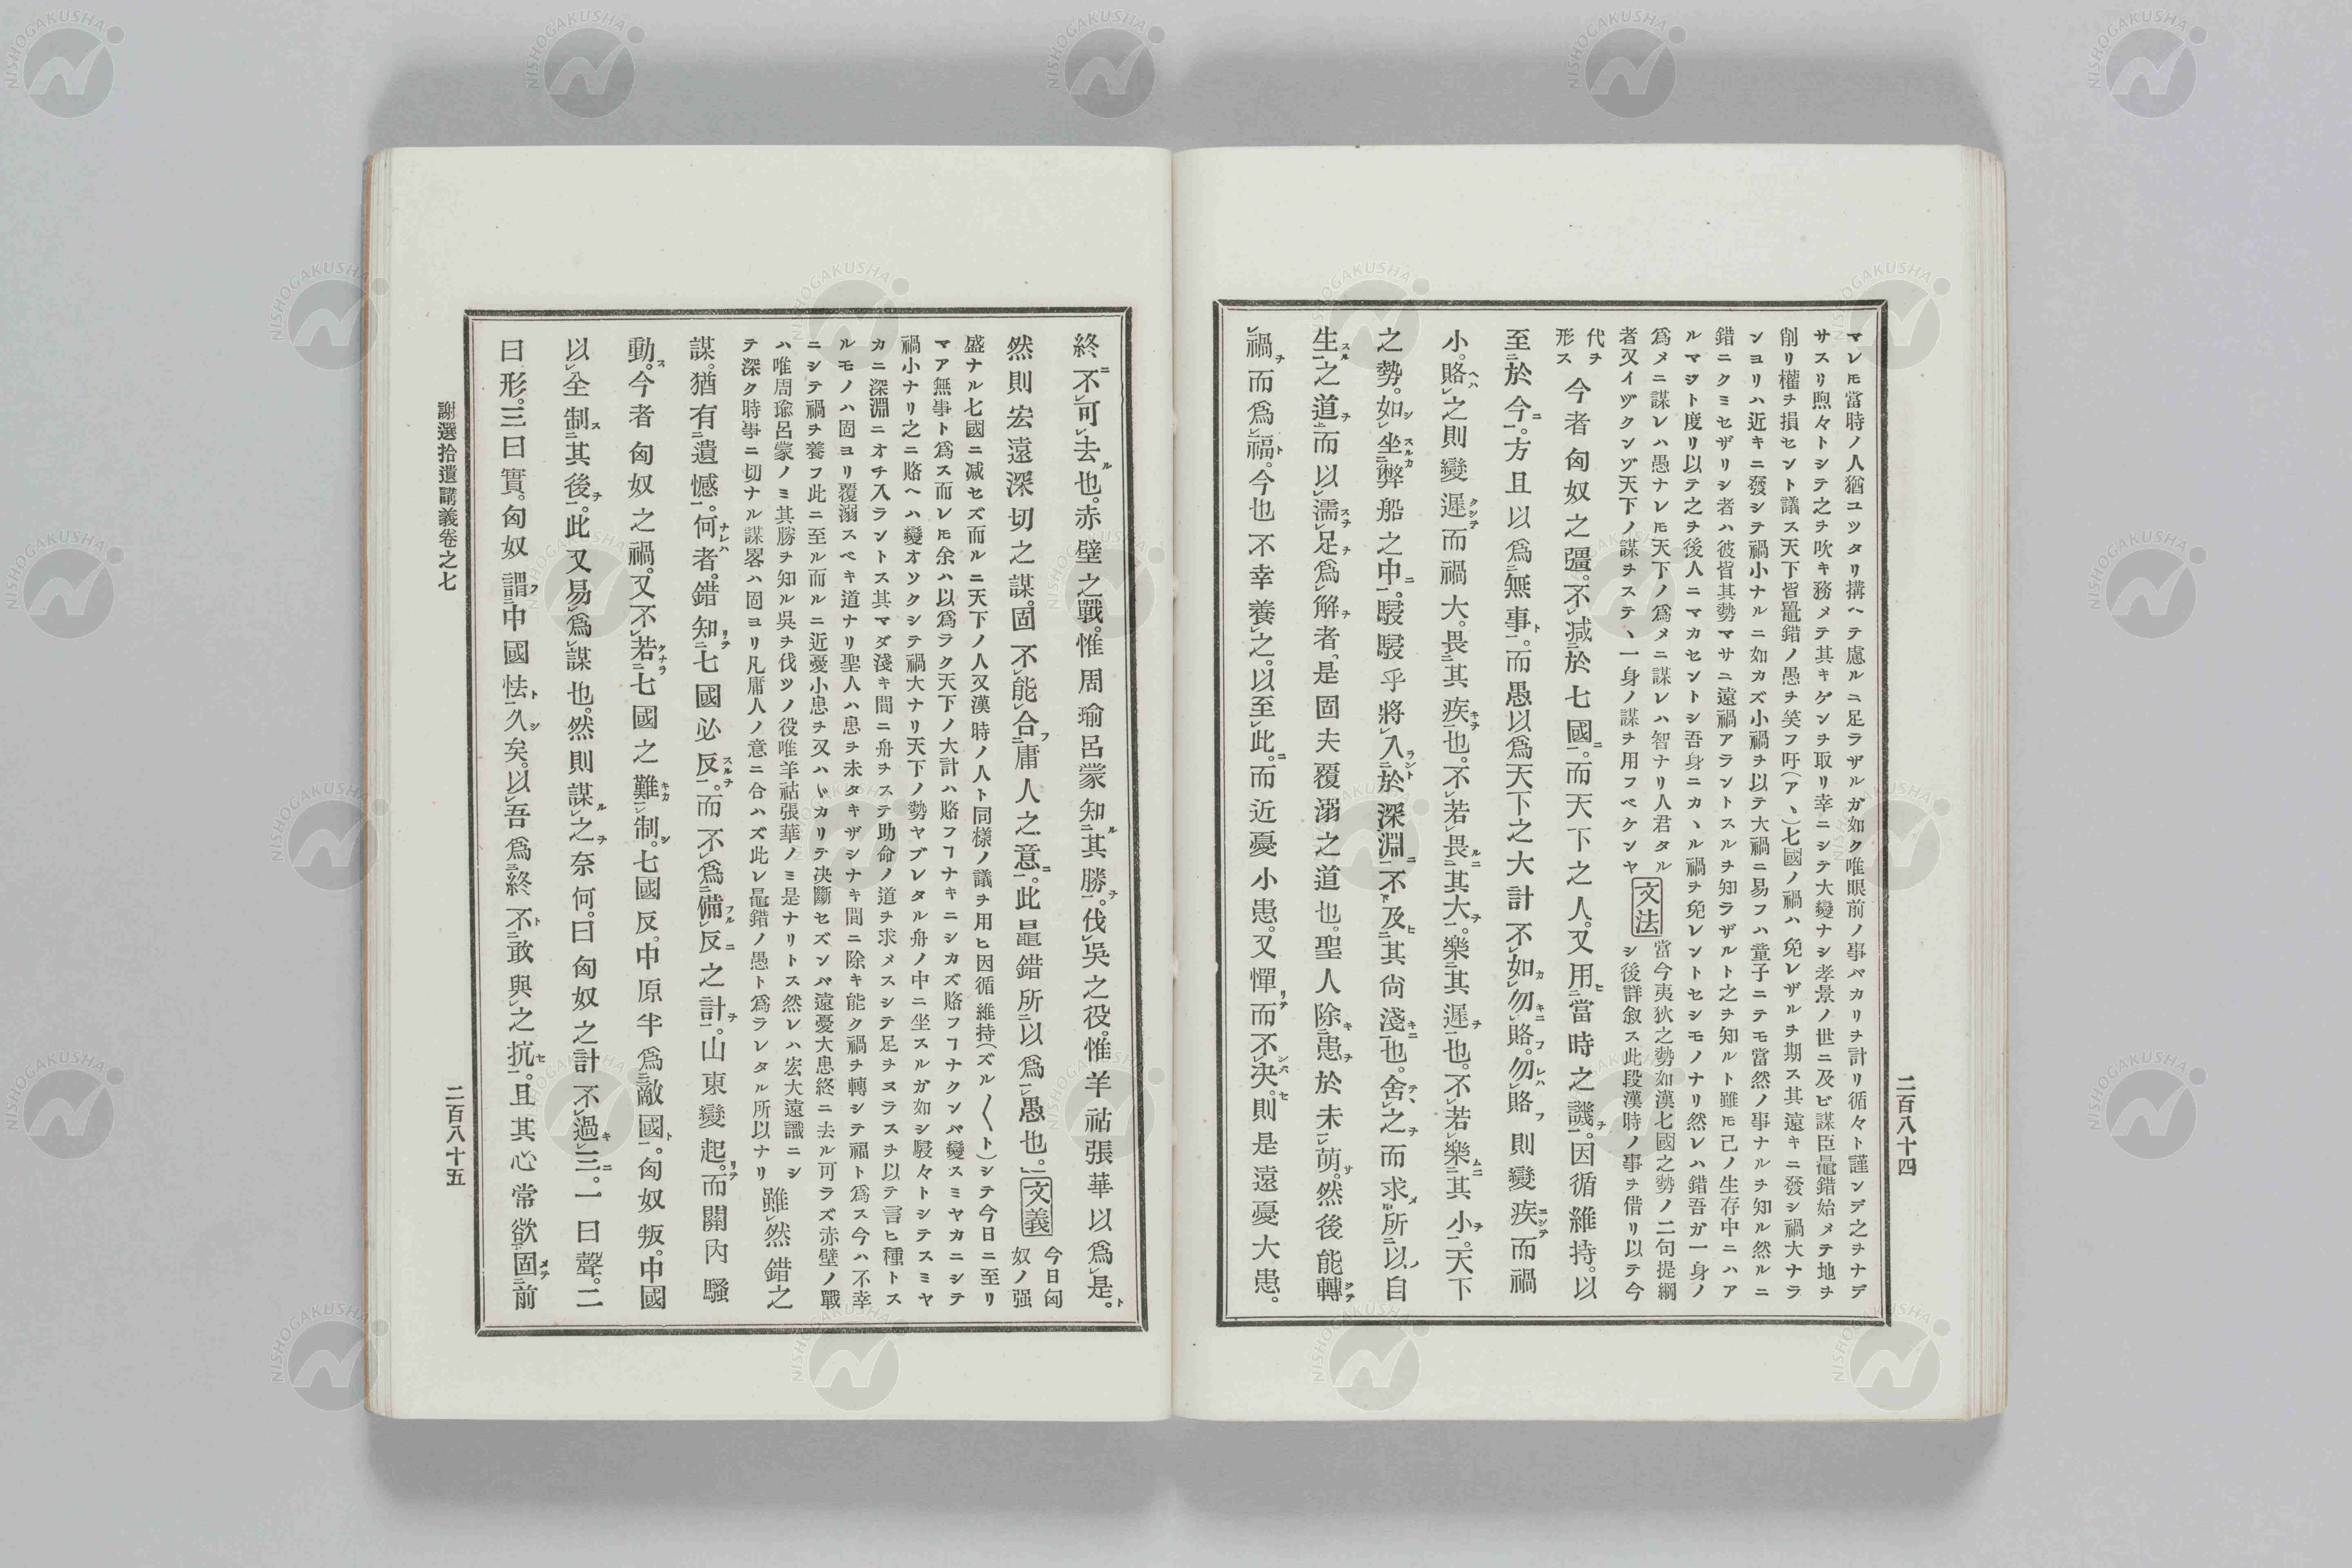 二百八十四
マレㇳモ當時ノ人猶ユツタリ搆ヘテ慮ルニ足ラザルガ如ク唯眼前ノ事バカリヲ計リ循々ト謹ンデ之ヲナデ
サスリ煦々トシテ之ヲ吹キ務メテ其キゲンヲ取リ幸ニシテ大變ナシ孝景ノ世ニ及ビ謀臣鼂錯始メテ地ヲ
削リ權ヲ損セント議ス天下皆鼂錯ノ愚ヲ笑フ吁(アヽ)七國ノ禍ハ免レザルヲ期ス其遠キニ發シ禍大ナラ
ンヨリハ近キニ發シテ禍小ナルニ如カズ小禍ヲ以テ大禍ニ易フハ童子ニテモ當然ノ事ナルヲ知ル然ルニ
錯ニクミセザリシ者ハ彼皆其勢マサニ遠禍アラントスルヲ知ラザルト之ヲ知ルト雖モ己ノ生存中ニハア
ルマヲト度リ以テ之ヲ後人ニマカセントシ吾身ニカヽル禍ヲ免レントセシモノナリ然レハ錯吾ガ一身ノ
爲メニ謀レハ愚ナレㇳモ天下ノ爲メニ謀レハ智ナリ人君タル
者又イヅクンゾ天下ノ謀ヲステヽ一身ノ謀ヲ用フベケンヤ
文法
當今夷狄之勢如漢七國之勢ノ二句提綱
シ後詳敘ス此段漢時ノ事ヲ借リ以テ今
代ヲ
形ス
今者匈奴之彊。不レ减二於七國一。而天下之人。又用二當時之譏一。因循維持。以
至二於今一。方且以爲二無事一。而愚以爲天下之大計不レ如レ勿レ賂。勿レ賂則變疾而禍
小。賂レ之則變遲而禍大。畏二其疾一也。不レ若レ畏二其大一。樂二其遲一也。不レ若レ樂二其小一。天下
之勢。如レ坐二弊船之中一。駸駸乎將レ入二於深淵一。不レ及二其尙淺一也。舍レ之而求所二以自
生一之道上。而以レ濡レ足爲レ解者。是固夫覆溺之道也。聖人除二患於未一レ萌。然後能轉
レ禍而爲レ福。今也不幸養レ之。以至レ此。而近憂小患。又憚而不レ決。則是遠憂大患。
終不レ可レ去也。赤壁之戰。惟周瑜呂蒙知二其勝一。伐レ吳之役。惟羊祜張華以爲レ是。
然則宏遠深切之謀。固不レ能レ合二庸人之意一。此鼂錯所二以爲一レ愚也。
文義
今日匈
奴ノ强
盛ナル七國ニ减セズ而ルニ天下ノ人又漢時ノ人ト同樣ノ議ヲ用ヒ因循維持(ズル〱ト)シテ今日ニ至リ
マア無事ト爲ス而レㇳモ余ハ以爲ラク天下ノ大計ハ賂フヿナキニシカズ賂フヿナクンバ變スミヤカニシテ
禍小ナリ之ニ賂ヘハ變オソクシテ禍大ナリ天下ノ勢ヤブレタル舟ノ中ニ坐スルガ如シ駸々トシテスミヤ
カニ深淵ニオチ入ラントス其マダ淺キ間ニ舟ヲステ助命ノ道ヲ求メスシテ足ヲヌラスヲ以テ言ヒ種トス
ルモノハ固ヨリ覆溺スベキ道ナリ聖人ハ患ヲ未タキザシナキ間ニ除キ能ク禍ヲ轉シテ福ト爲ス今ハ不幸
ニシテ禍ヲ養フ此ニ至ル而ルニ近憂小患ヲ又ハヾカリテ決斷セズンバ遠憂大患終ニ去ル可ラズ赤壁ノ戰
ハ唯周瑜呂蒙ノミ其勝ヲ知ル吳ヲ伐ツノ役唯羊祜張華ノミ是ナリトス然レハ宏大遠識ニシ
テ深ク時事ニ切ナル謀畧ハ固ヨリ凡庸人ノ意ニ合ハズ此レ鼂錯ノ愚ト爲ラレタル所以ナリ
雖レ然錯之
謀。猶有二遺憾一。何者。錯知二七國必反一。而不レ爲二備レ反之計一。山東變起。而關內騷
動。今者匈奴之禍。又不レ若二七國之難一レ制。七國反。中原半爲二敵國一。匈奴叛。中國
以レ全制二其後一。此又易レ爲レ謀也。然則謀レ之奈何。曰匈奴之計不レ過レ三。一曰聲。二
曰形。三曰實。匈奴謂二中國怯一久矣。以レ吾爲三終不二敢與レ之抗一。且其心常欲下固二前
謝選拾遺講義卷之七
二百八十五
NISHOGAKUSHA